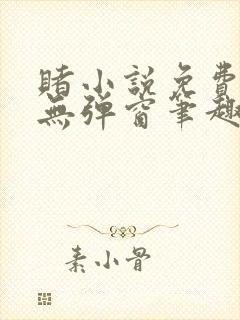 賭小説免費
無彈窗筆趣
素小骨